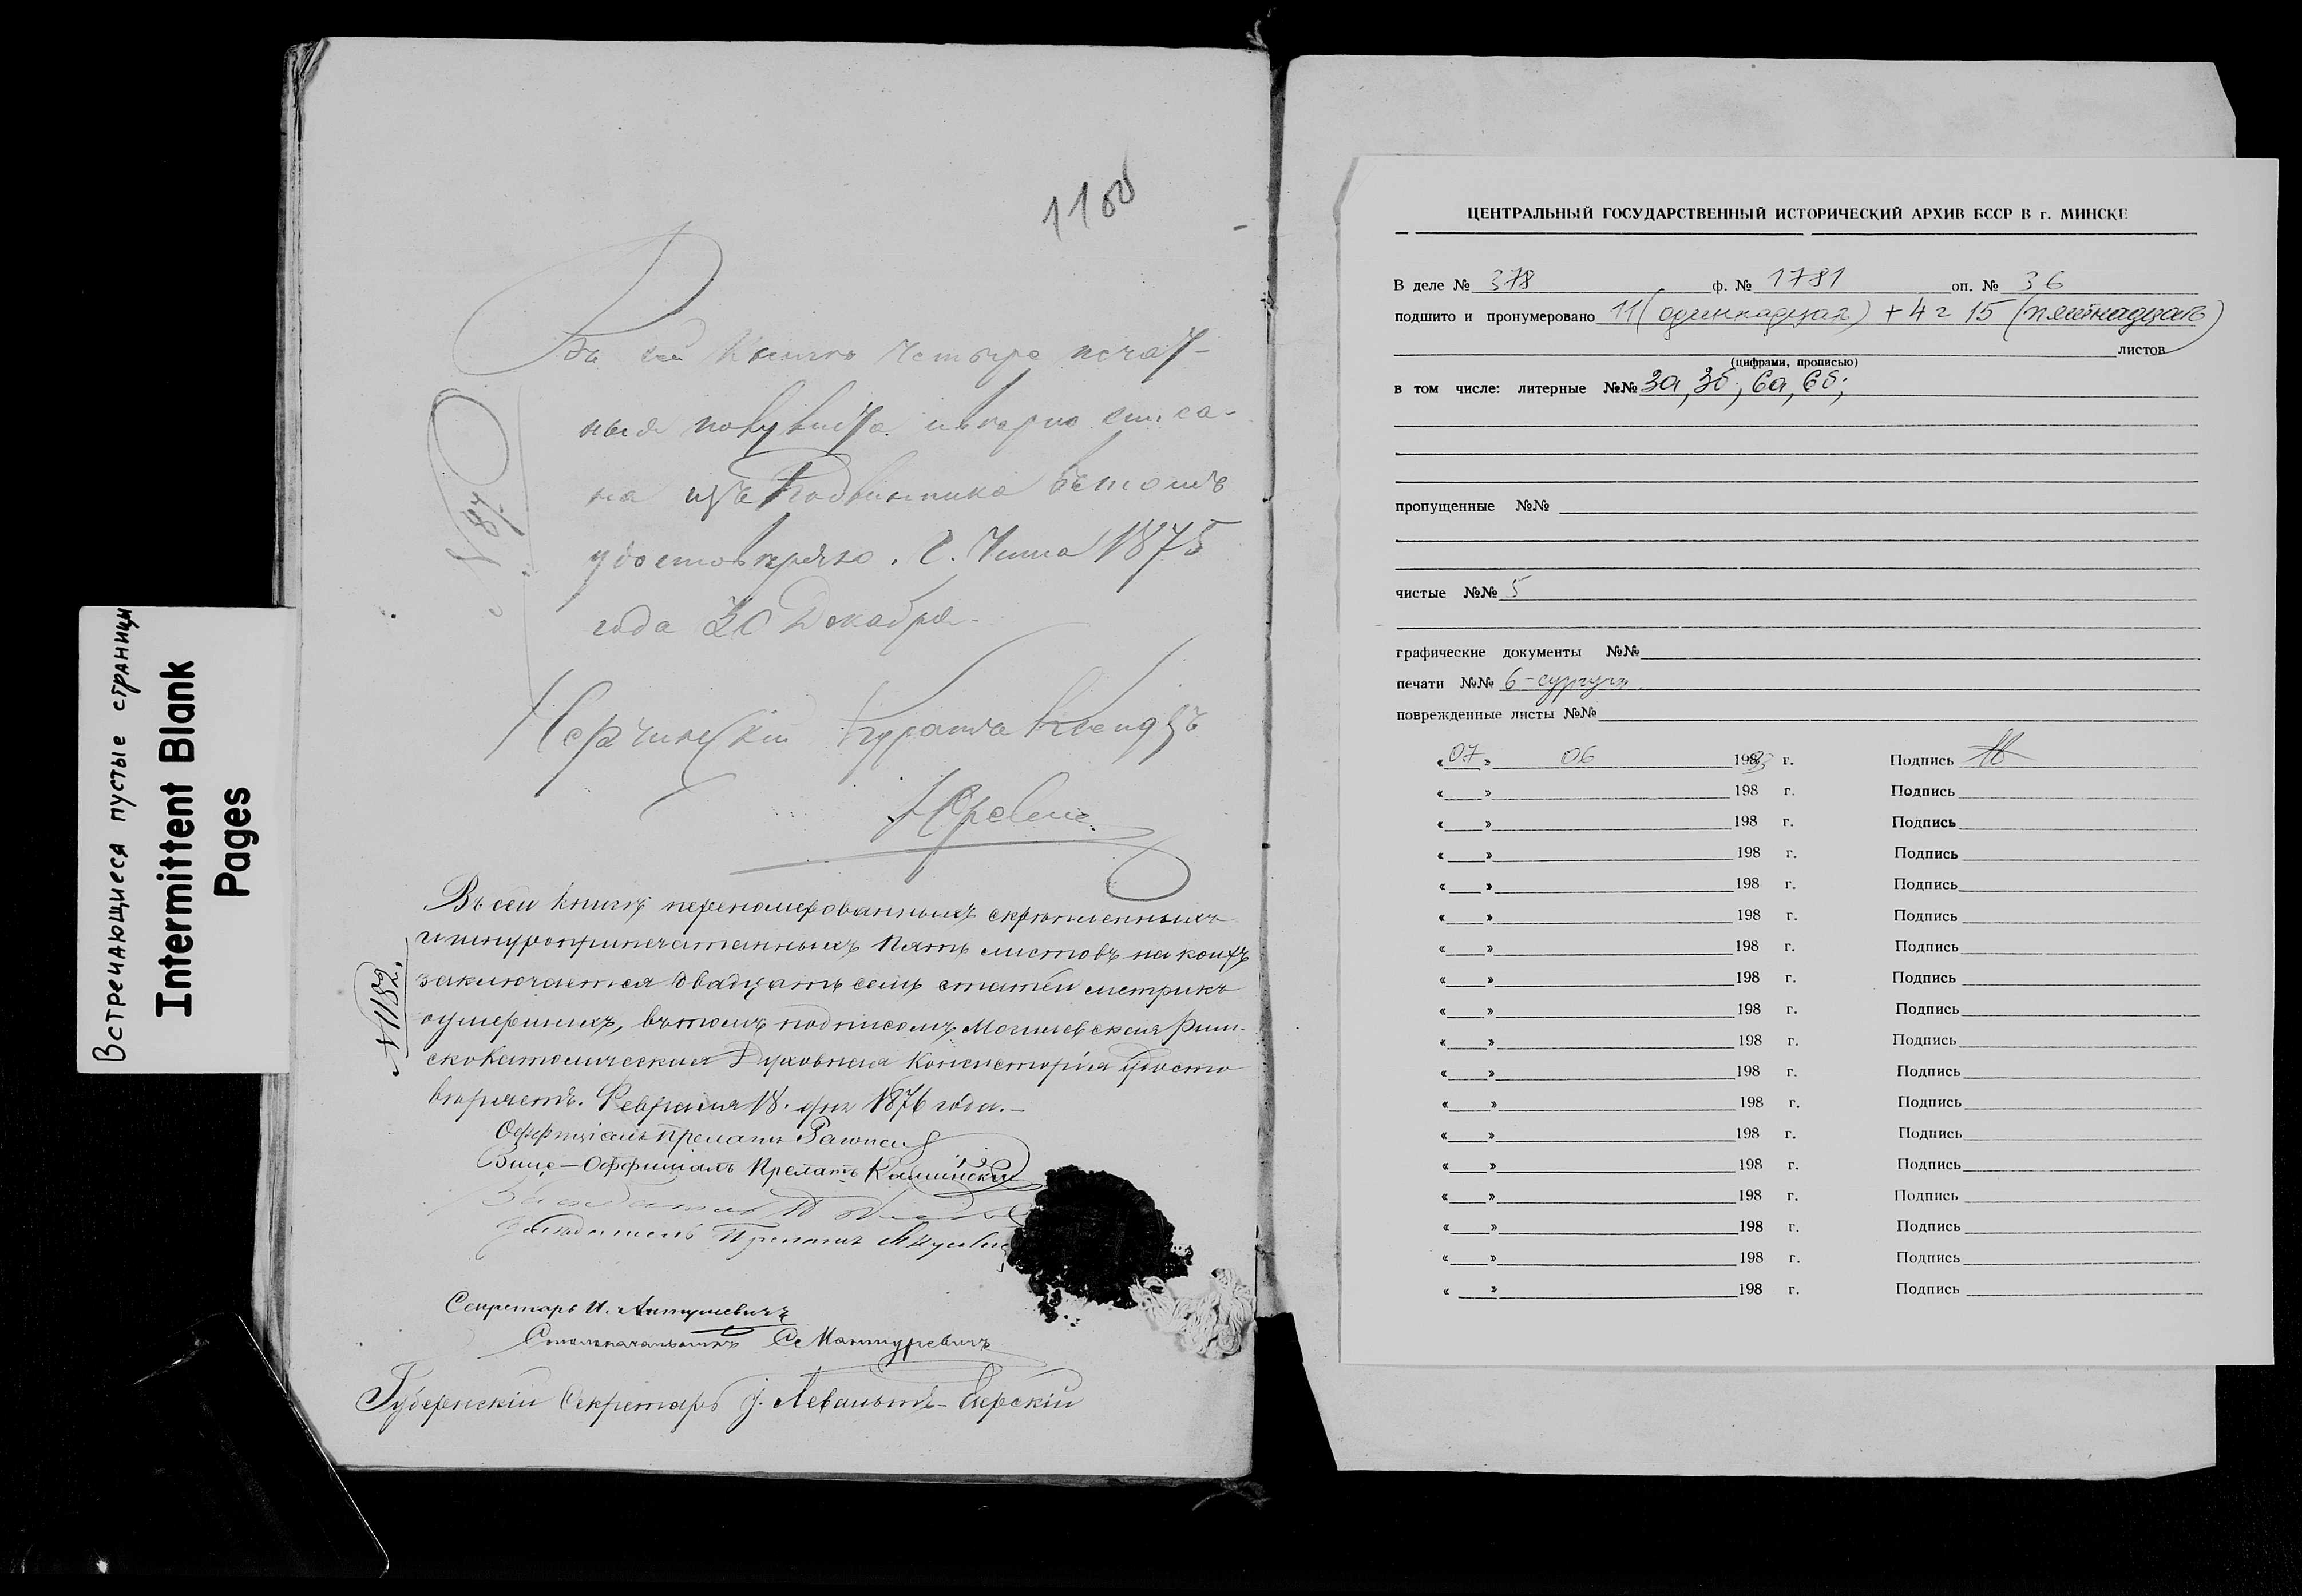 Встречающиеся пустые страницы
Intermittent Blank
Pages
1100
Въ сей книгѣ четыре печат-
ные
на изъ
удостовѣряю. Г. Чита 1875
года 30 Декабря.
Нерчинскій Куратъ Ксендзъ
№ 87.
Въ сей книгѣ перенумерованныхъ скрѣпленныхъ
и шнуроприпечатанныхъ пять листовъ на коихъ
заключается двадцать семь статей метрикъ
о умершихъ, въ томъ подписомъ Могилевская Рим-
ско Католическая Духовная Консисторія удосто
вѣряетъ. Февраля 18. дня 1876 года.—
№ 1182.
Оффиціалъ Прелатъ
Вице-Оффиціалъ Прелатъ Каминскій
Засѣдатель
Засѣдатель Прелатъ
Секретарь И.
Столоначальникъ
Губернскій Секретарь
ЦЕНТРАЛЬНЫЙ ГОСУДАРСТВЕННЫЙ ИСТОРИЧЕСКИЙ АРХИВ БССР В г. МИНСКЕ
В деле № 378 ф. № 1781 оп. № 36
подшито и пронумеровано 11 (одиннадцать) + 4 = 15 (пятнадцать)
листов
(цифрами, прописью)
в том числе: литерные №№ 3а, 3б; 6а, 6б;
пропущенные №№
чистые №№ 5
графические документы №№
печати №№ 6 - сургучн.
поврежденные листы №№
«07» 06 198 г. Подпись
« » 198 г. Подпись
« » 198 г. Подпись
« » 198 г. Подпись
« » 198 г. Подпись
« » 198 г. Подпись
« » 198 г. Подпись
« » 198 г. Подпись
« » 198 г. Подпись
« » 198 г. Подпись
« » 198 г. Подпись
« » 198 г. Подпись
« » 198 г. Подпись
« » 198 г. Подпись
« » 198 г. Подпись
« » 198 г. Подпись
« » 198 г. Подпись
« » 198 г. Подпись